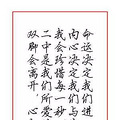 命运决定我们进
内心决定我们与
我会珍惜每一秒
二中是我们所爱
双脚会离开,心